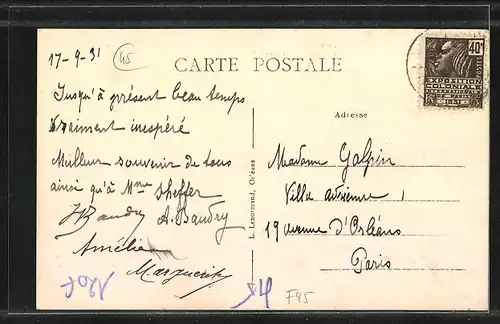 17-9-31
45
CARTE POSTALE
40c
POSTES
EXPOSITION
COLONIALE
INTERNATIONALE
PARIS
1931
Jusqu'à présent beau temps
vraiment inespéré
Meilleur souvenir de tous
ainsi qu'à Mme Sheffer
Baudry A. Baudry
Amélie
Marguerite
Adresse
Madame Galpin
Villa
19 avenue d'Orléans
Paris
L. Lenormand, Orléans
120f
F45